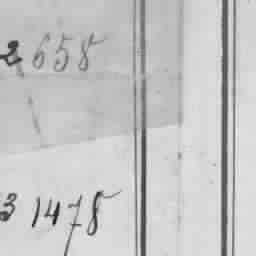 2 658
3 1478